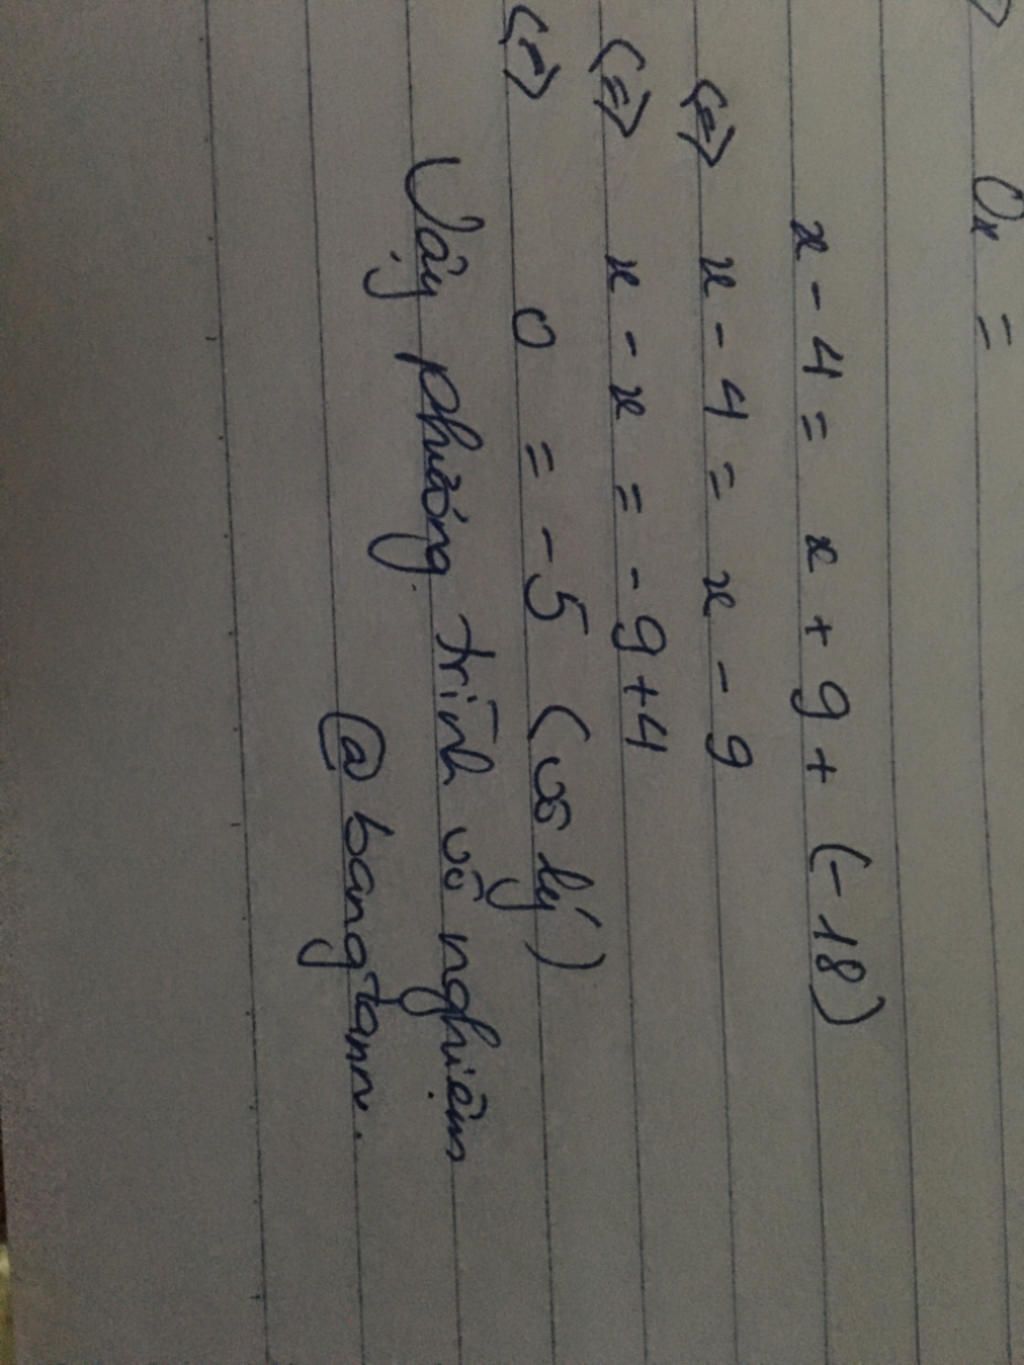 0x =
x - 4 = x + 9 + (-18)
<=> x - 4 = x - 9
<=> x - x = -9+4
<=> 0 = -5 (vô lý)
Vậy phương trình vô nghiệm
@bangtann.